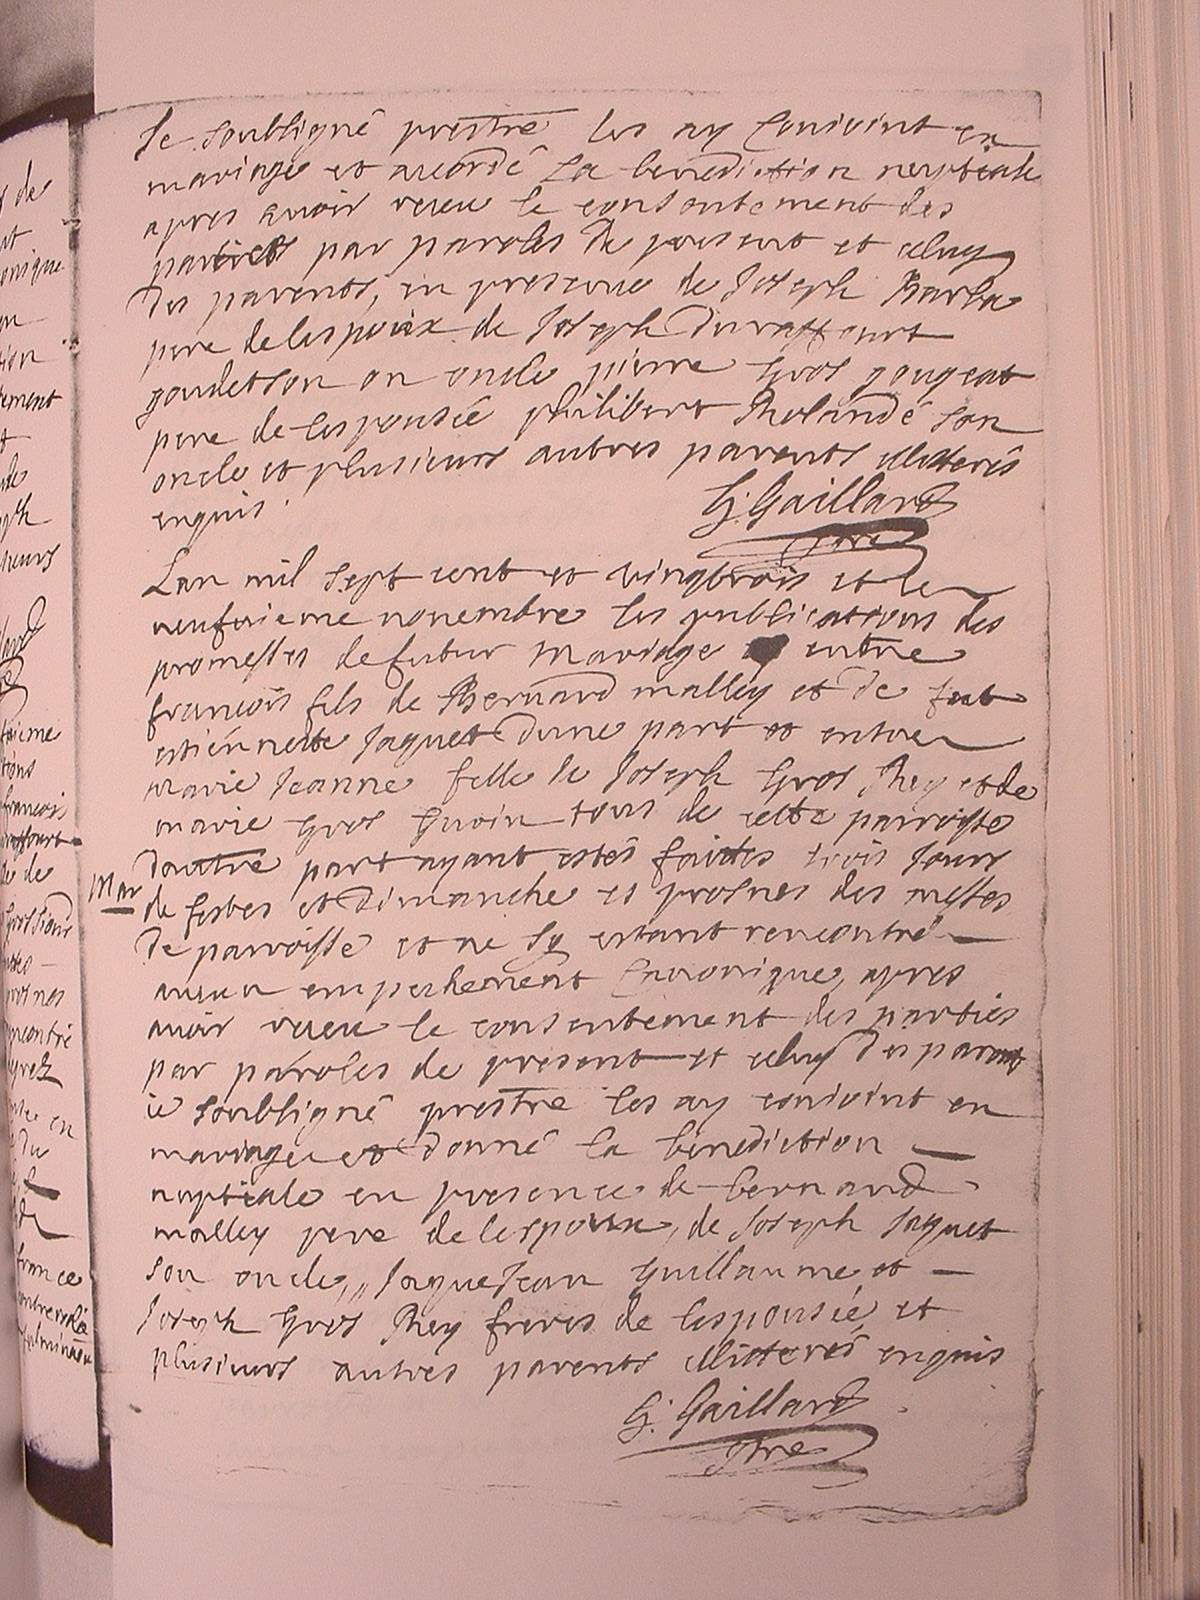 Je soubligné prestre les ay conioint en
mariage et accordé la benediction nuptiale
apres avoir receu le consentement des
parties par paroles de present et celuy
des parents, en presence de Joseph Barba
pere de lespoux de Joseph Duraffourt
goudetson on oncle pierre Gros gougeat
pere de lespousée philibert Rolande son
oncle et plusieurs autres parents illiterés
enquis.
G. Gaillard
ptre
Lan mil sept cent et vingtrois et le
neufvieme novembre les publications des
promesses de futur mariage entre
francois fils de Bernard malley et de fut
estiennette Jaquet dune part et entre
marie Jeanne fille de Joseph Gros Rey et de
marie Gros Gurin tous de cette parroisse
dautre part ayant estés faites trois Jours
Mar
de festes et dimanche es prosnes des messes
de parroisse et ne sy estant rencontré
aucun empechement Canonique, apres
avoir receu le consentement des parties
par paroles de present et celuy des parents
ie soubligné prestre les ay conioint en
mariage et donné la benediction
nuptiale en presence de bernard
malley pere de lespoux, de Joseph Jaquet
son oncle, Jaque Jean Guillaume et
Joseph Gros Rey freres de lespousée et
plusieurs autres parents illiterés enquis
G. Gaillard
ptre